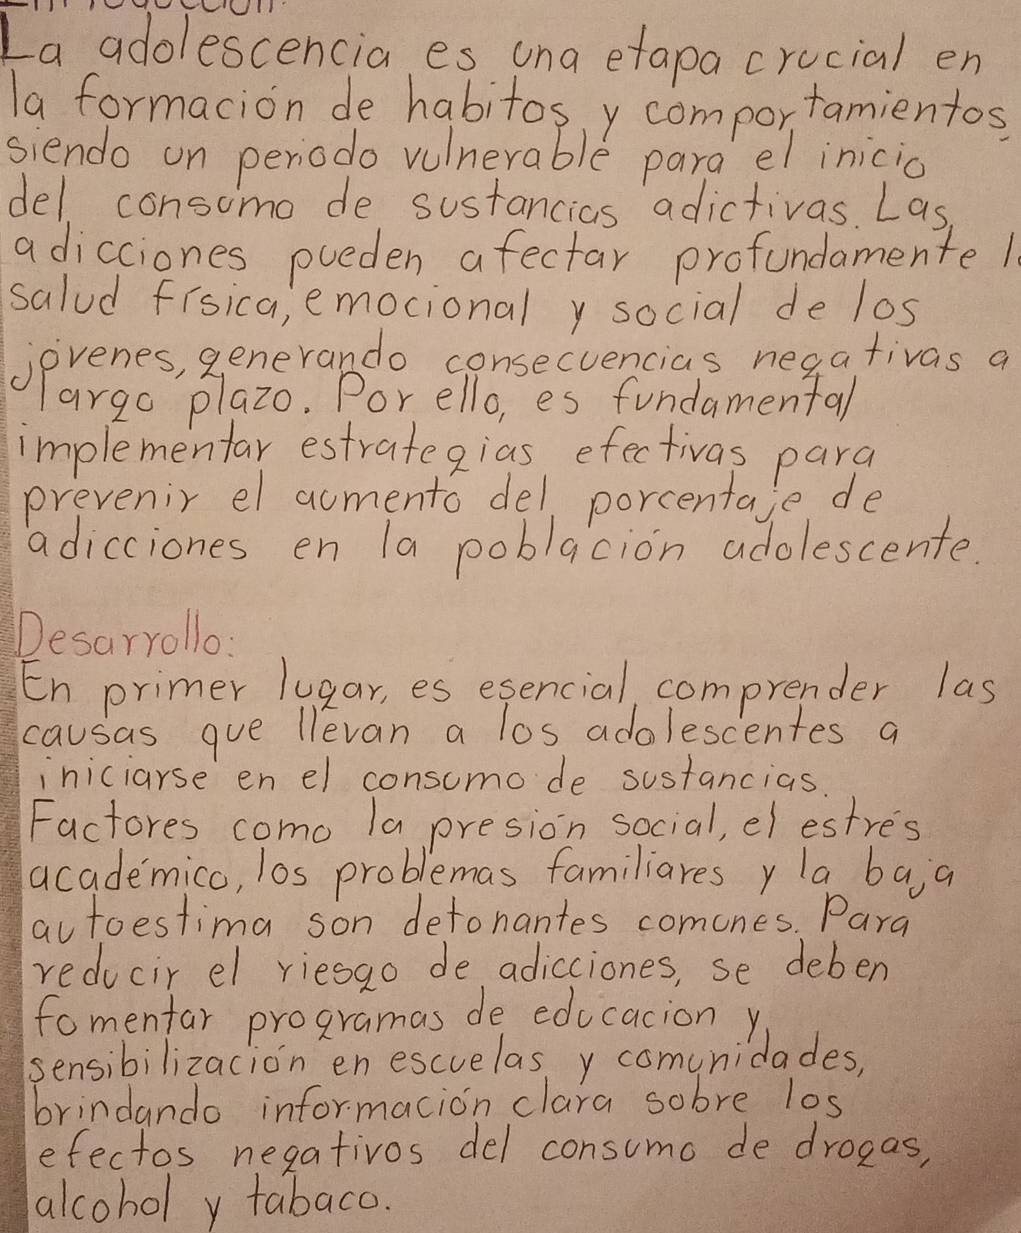 La adolescencia es una etapa crucial en
la formación de habitos, y comportamientos,
siendo un periodo vulnerable para el inicio
del consumo de sustancias adictivas. Las
adicciones pueden afectar profundamente
salud física, emocional y social de los
jóvenes, generando consecuencias negativas a
largo plazo. Por ello, es fundamental
implementar estrategias efectivas para
prevenir el aumento del porcentaje de
adicciones en la población adolescente.
Desarrollo:
En primer lugar, es esencial comprender las
causas que llevan a los adolescentes a
iniciarse en el consumo de sustancias.
Factores como la presión social, el estrés
académico, los problemas familiares y la baja
autoestima son detonantes comunes. Para
reducir el riesgo de adicciones, se deben
fomentar programas de educacion y
sensibilización en escuelas y comunidades,
brindando información clara sobre los
efectos negativos del consumo de drogas,
alcohol y tabaco.